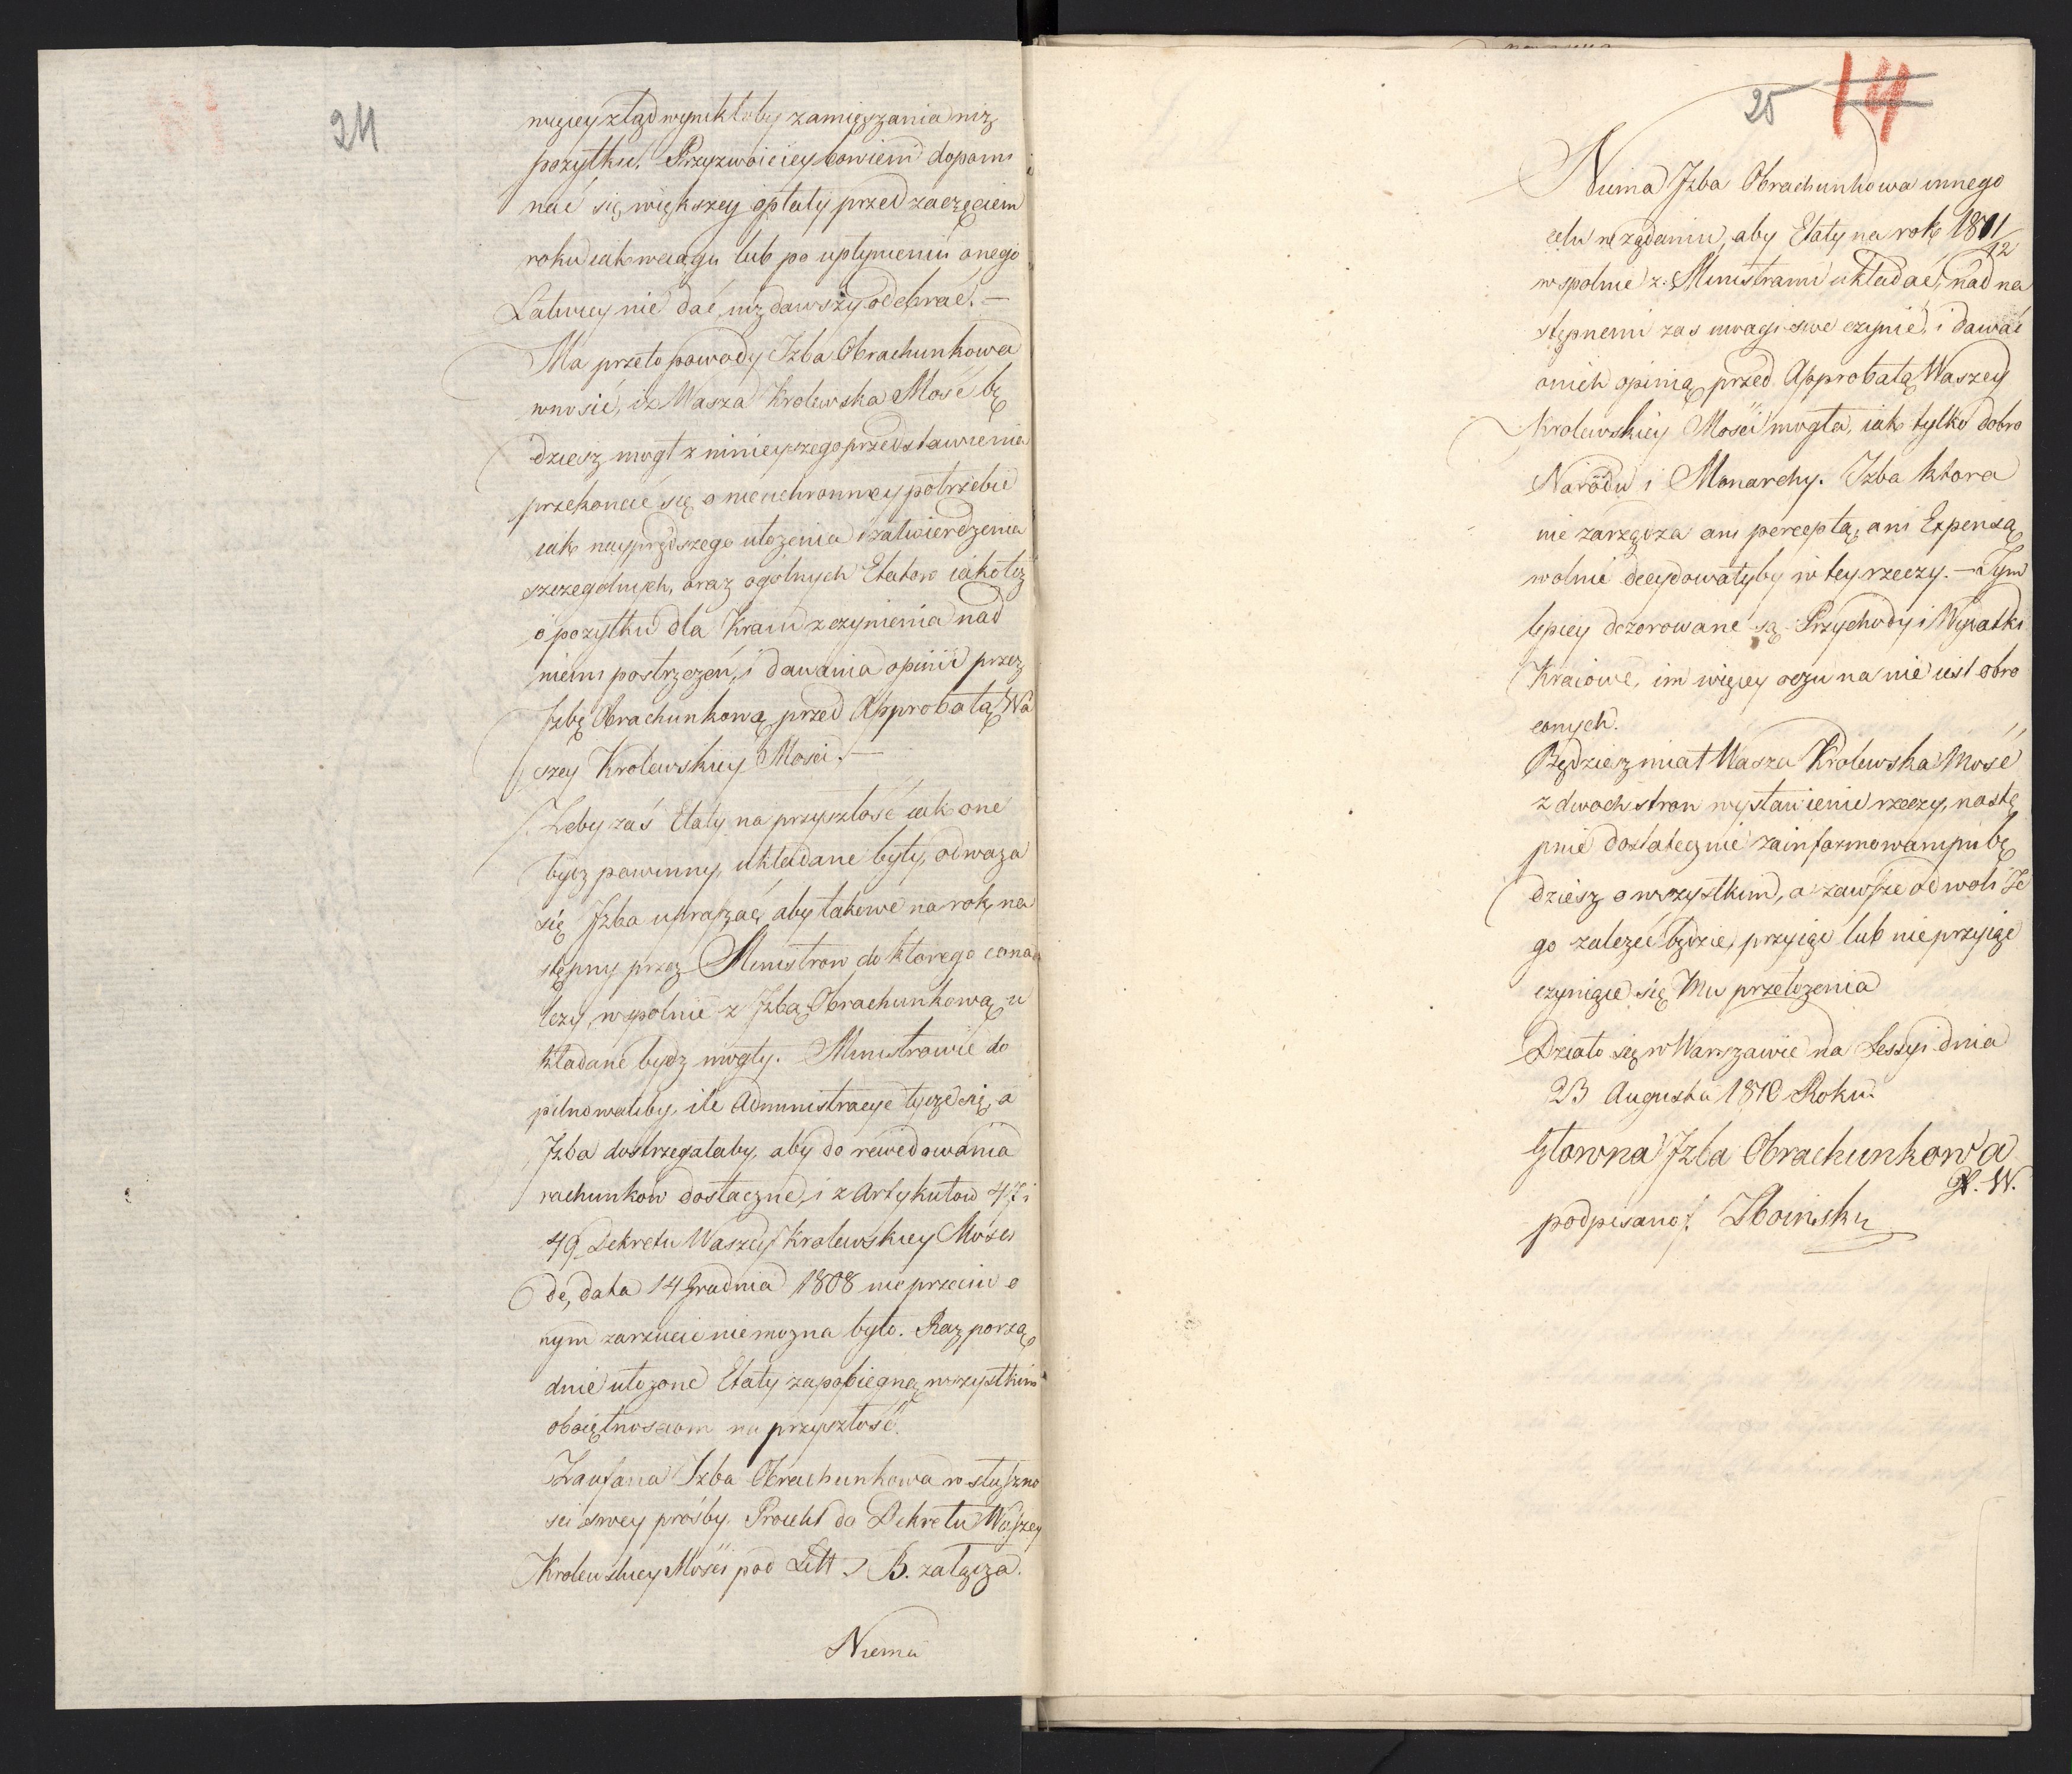 24
więcey ztąd wynikłoby zamięszania niż
pozytku. Przyzwoiciey bowiem dopomi
nać się większey opłaty przed zaczęciem
roku iak wciągu lub po upłynieniu onego
Łatwiey nie dać, niż dawszy odebrać. —
Ma przeto powody Izba Obrachunkowa
wnosić, iż Wasza Krolewska Mość bę
dziesz mogł z ninieyszego przedstawienia
przekonać się o nieuchronney potrzebie
iak nayprędszego ułożenia i zatwierdzenia
szczegolnych, oraz ogólnych Etatow iakoteż
o pozytku dla Kraiu z czynienia nad
niemi postrzeżeń, i dawania opinii przez
Izbę Obrachunkową przed Approbatą Wa
szey Krolewskiey Mosci. —
Żeby zaś Etaty na przyszłość iak one
bydz powinny, układane były, odważa
się Izba upraszać, aby takowe na rok na
stępny przez Ministrow do ktorego co na
leży, wspolnie z Izbą Obrachunkową u
kładane bydz mogły. Ministrowie do
pilnowaliby, ile Administracye tycze się, a
Izba dostrzegałaby, aby do rewidowania
rachunkow dostaczne, i z Artykułow 47 i
49 Dekretu Waszey Krolewskiey Mości
de, data 14 Grudnia 1808 nic przeciw o
nym zarzucić nie można było. Raz porzą
dnie ułożone Etaty zapobiegną wszystkim
obiętnosciom na przyszłość.
Zaufana Izba Obrachunkowa w słuszno
sci swey prośby, Proiekt do Dekretu Waszey
Krolewskiey Mości pod Litt. B. załącza.
Niema
25 14
Niema Izba Obrachunkowa innego
celu w żądaniu, aby Etaty na rok 1811/12
wspolnie z Ministrami układać, nad na
stępnemi zas uwagi swe czynić, i dawać
o nich opinią przed Approbatą Waszey
Krolewskiey Mości mogła, iak tylko dobro
Narodu i Monarchy. Izba ktora
nie zarządza ani perceptą, ani Expensą
wolnie decydowałyby w tey rzeczy. — Tym
lepiey dozorowane są Przychody i Wydatki
Kraiowe, im więcey oczu na nie iest obro
conych.
Będziesz miał Wasza Krolewska Mość
z dwoch stron wystawienie rzeczy, nastę
pnie dostatecznie zainformowanym bę
dziesz o wszystkim, a zawsze od woli Je
go zależeć będzie, przyiąć lub nie przyiąć
czyniące się Mu przełożenia
Działo się w Warszawie na Sessyi dnia
23 Augusta 1810 Roku.
Głowna Izba Obrachunkowa
X. W.
podpisano/. Zboinsky